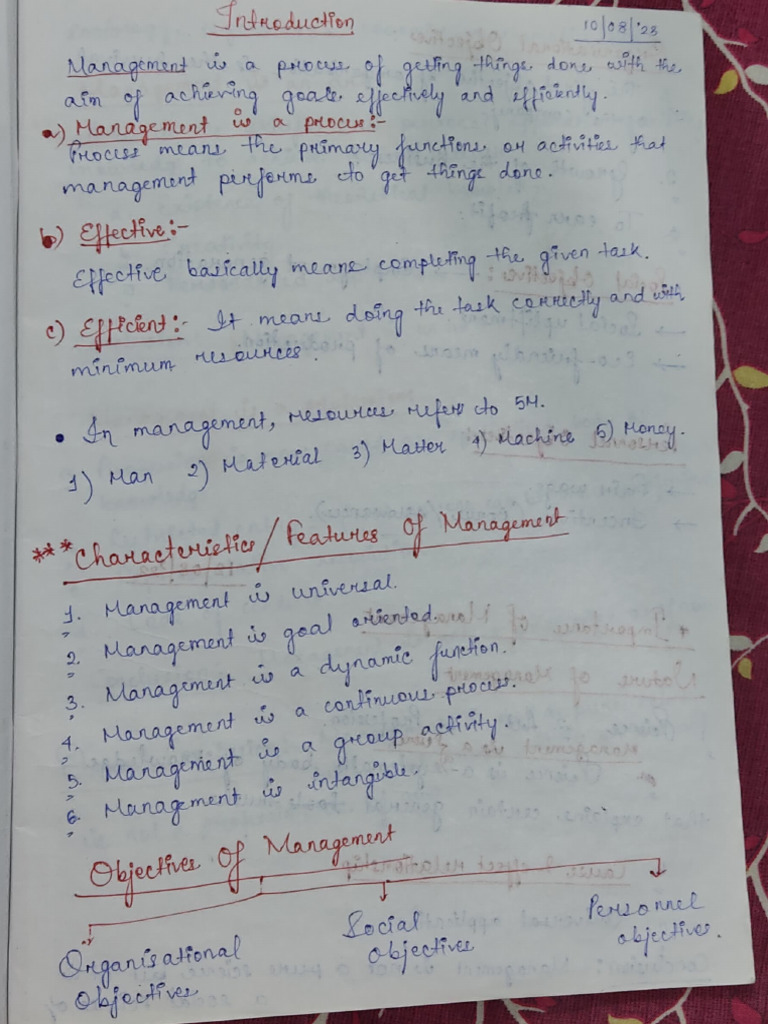 Introduction
10/08/'23
Management is a process of getting things done with the
aim of achieving goals effectively and efficiently.
a) Management is a process:-
Process means the primary functions or activities that
management performs to get things done.
b) Effective:-
Effective basically means completing the given task.
c) Efficient:- It means doing the task correctly and with
minimum resources.
• In management, resources refers to 5M.
1) Man 2) Material 3) Matter 4) Machine 5) Money.
*** Characteristics/Features Of Management
1. Management is universal.
2. Management is goal oriented.
3. Management is a dynamic function.
4. Management is a continuous process.
5. Management is a group activity.
6. Management is intangible.
Objectives Of Management
Organisational Objectives
Social Objectives
Personnel objectives.